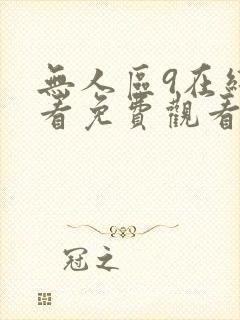 無人區9在線
看免費觀看
冠之